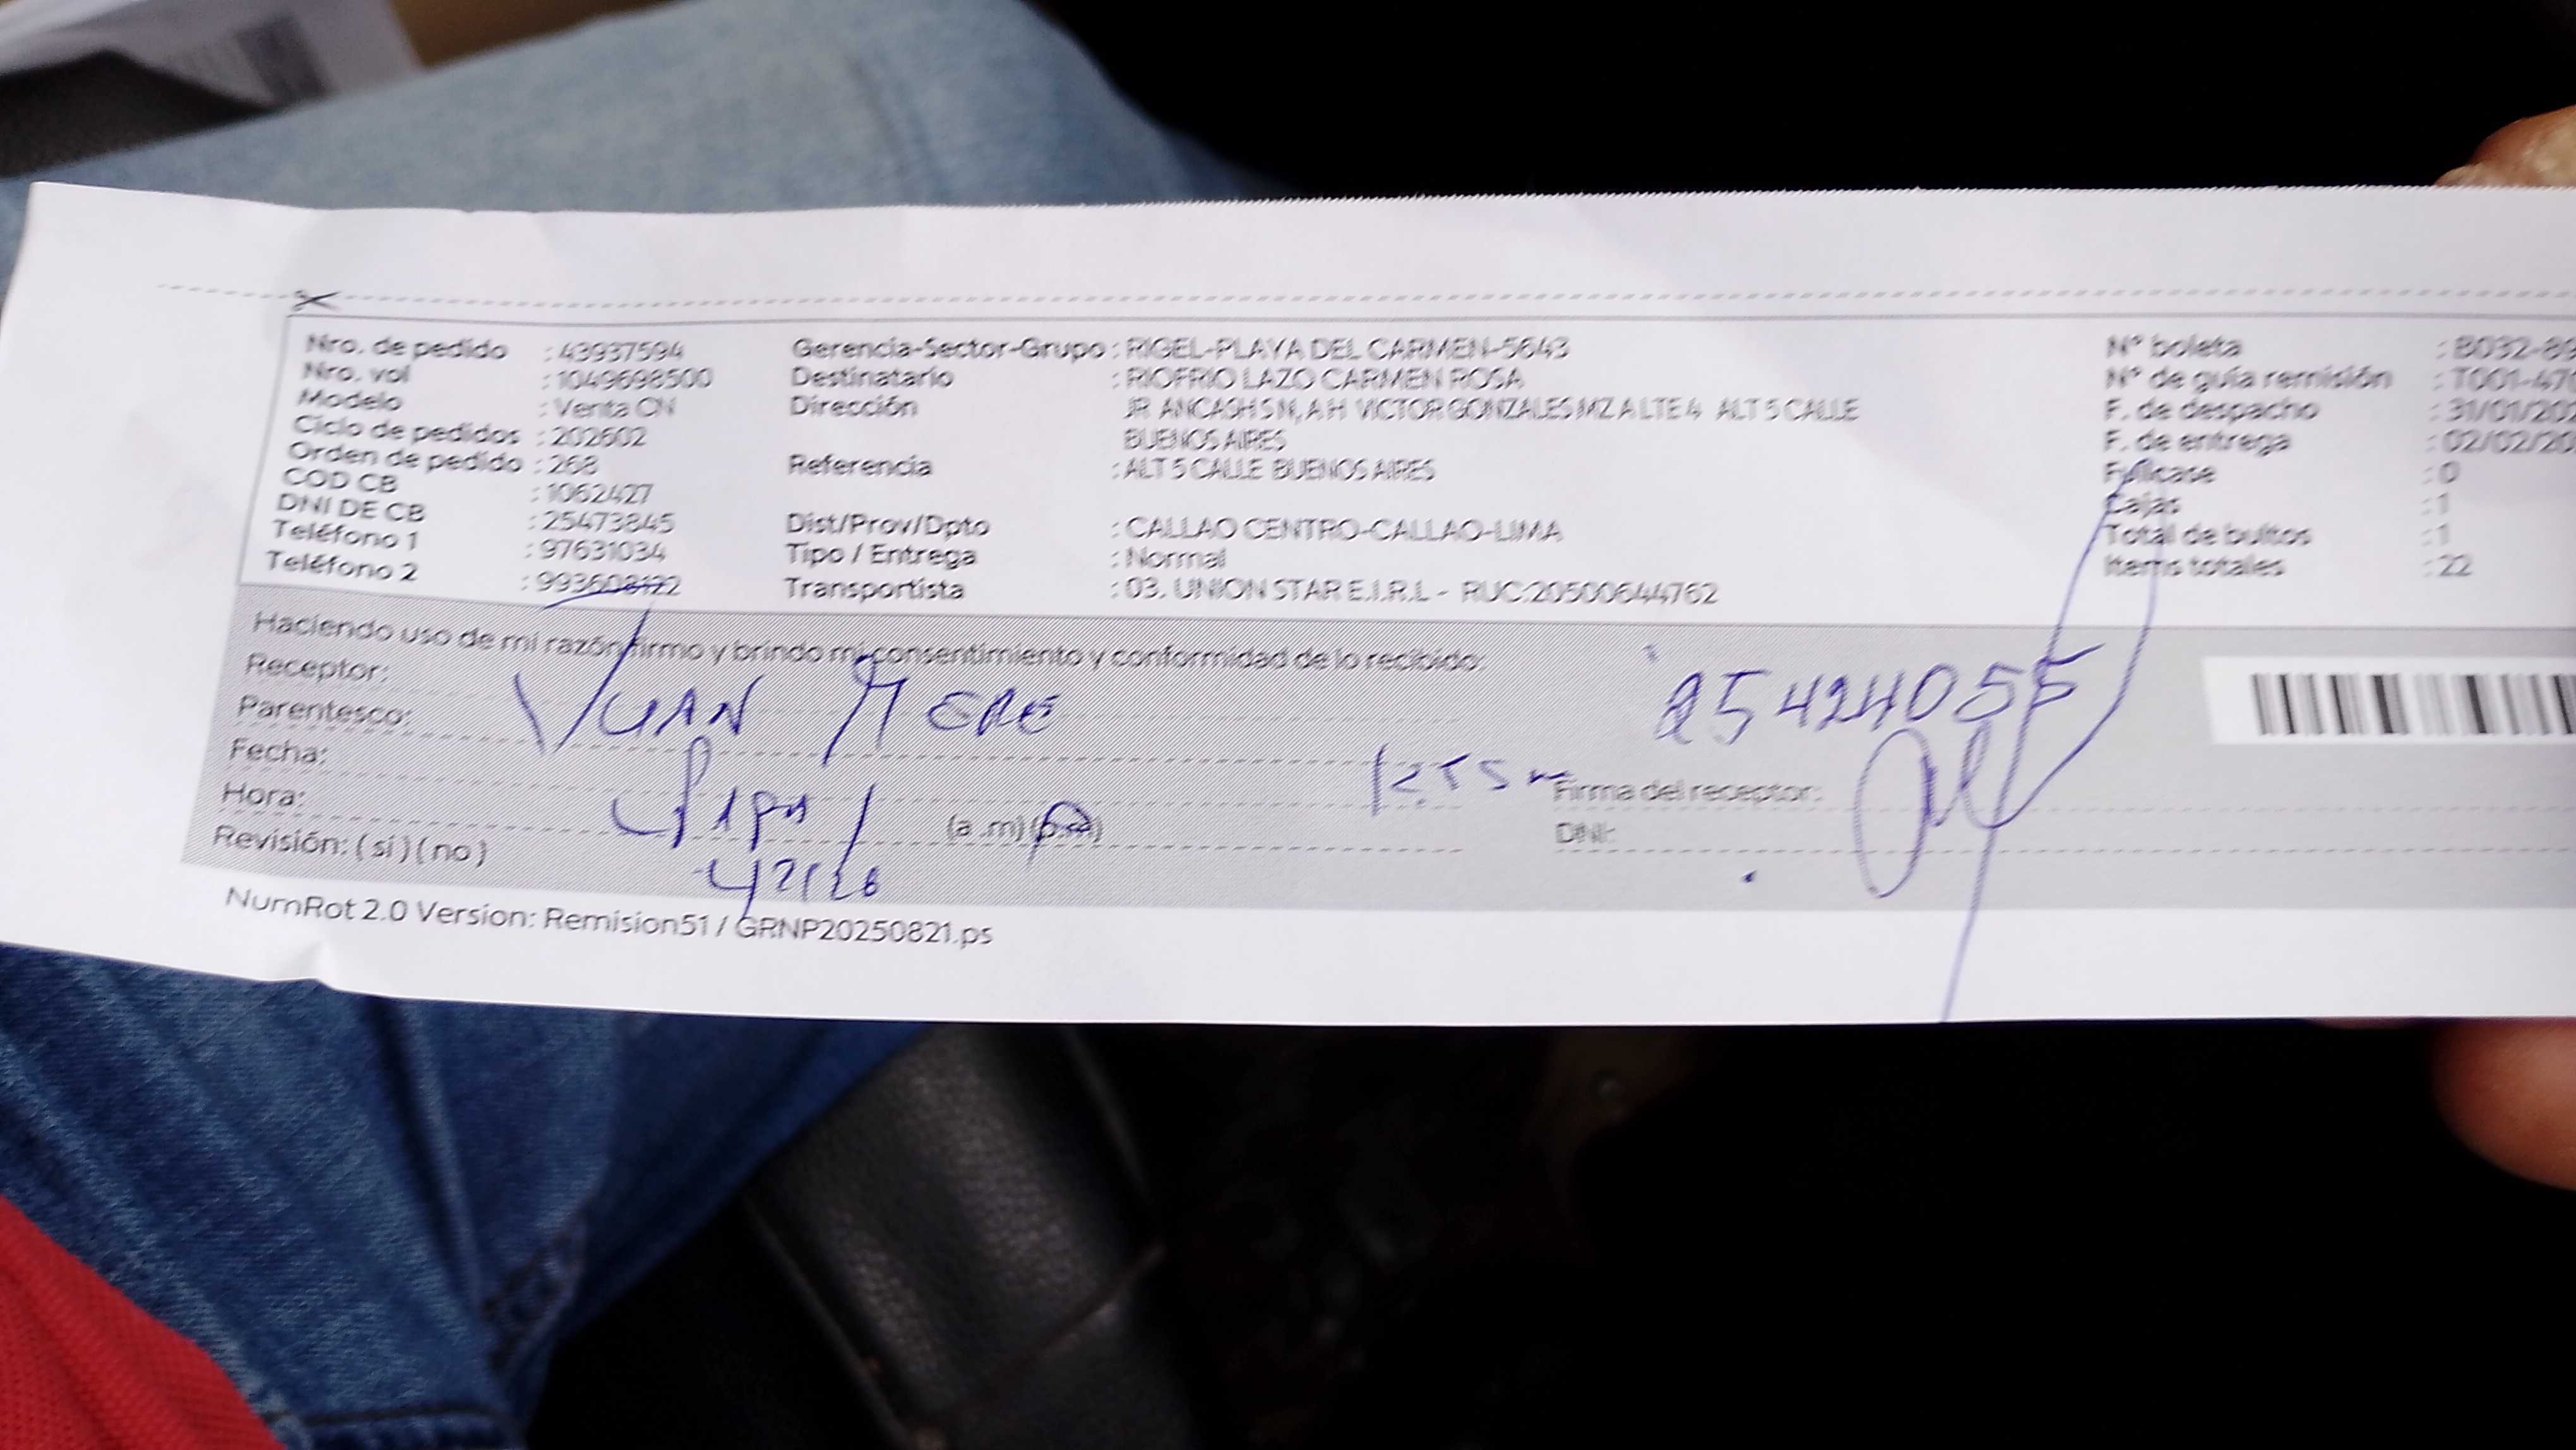 Nro. de pedido : 43937594
Nro. vol : 1049698500
Modelo : Venta CN
Ciclo de pedidos : 202602
Orden de pedido : 268
COD CB : 1062427
DNI DE CB : 25473845
Teléfono 1 : 97631034
Teléfono 2 : 993608122
Gerencia-Sector-Grupo : RIGEL-PLAYA DEL CARMEN-5643
Destinatario : RIOFRIO LAZO CARMEN ROSA
Dirección : JR ANCASH SN, A H VICTOR GONZALES MZ A LTE 4 ALT 5 CALLE
BUENOS AIRES
Referencia : ALT 5 CALLE BUENOS AIRES
Dist/Prov/Dpto : CALLAO CENTRO-CALLAO-LIMA
Tipo / Entrega : Normal
Transportista : 03. UNION STAR E.I.R.L - RUC:20500644762
N° boleta : B032-89
N° de guía remisión : T001-47
F. de despacho : 31/01/202
F. de entrega : 02/02/20
Fullcase : 0
Cajas : 1
Total de bultos : 1
Items totales : 22
Haciendo uso de mi razón firmo y brindo mi consentimiento y conformidad de lo recibido:
Receptor:
Parentesco:
Fecha:
Hora: (a.m)(p.m)
Revisión: ( si ) ( no )
25424055
Firma del receptor:
DNI:
NumRot 2.0 Version: Remision51 / GRNP20250821.ps